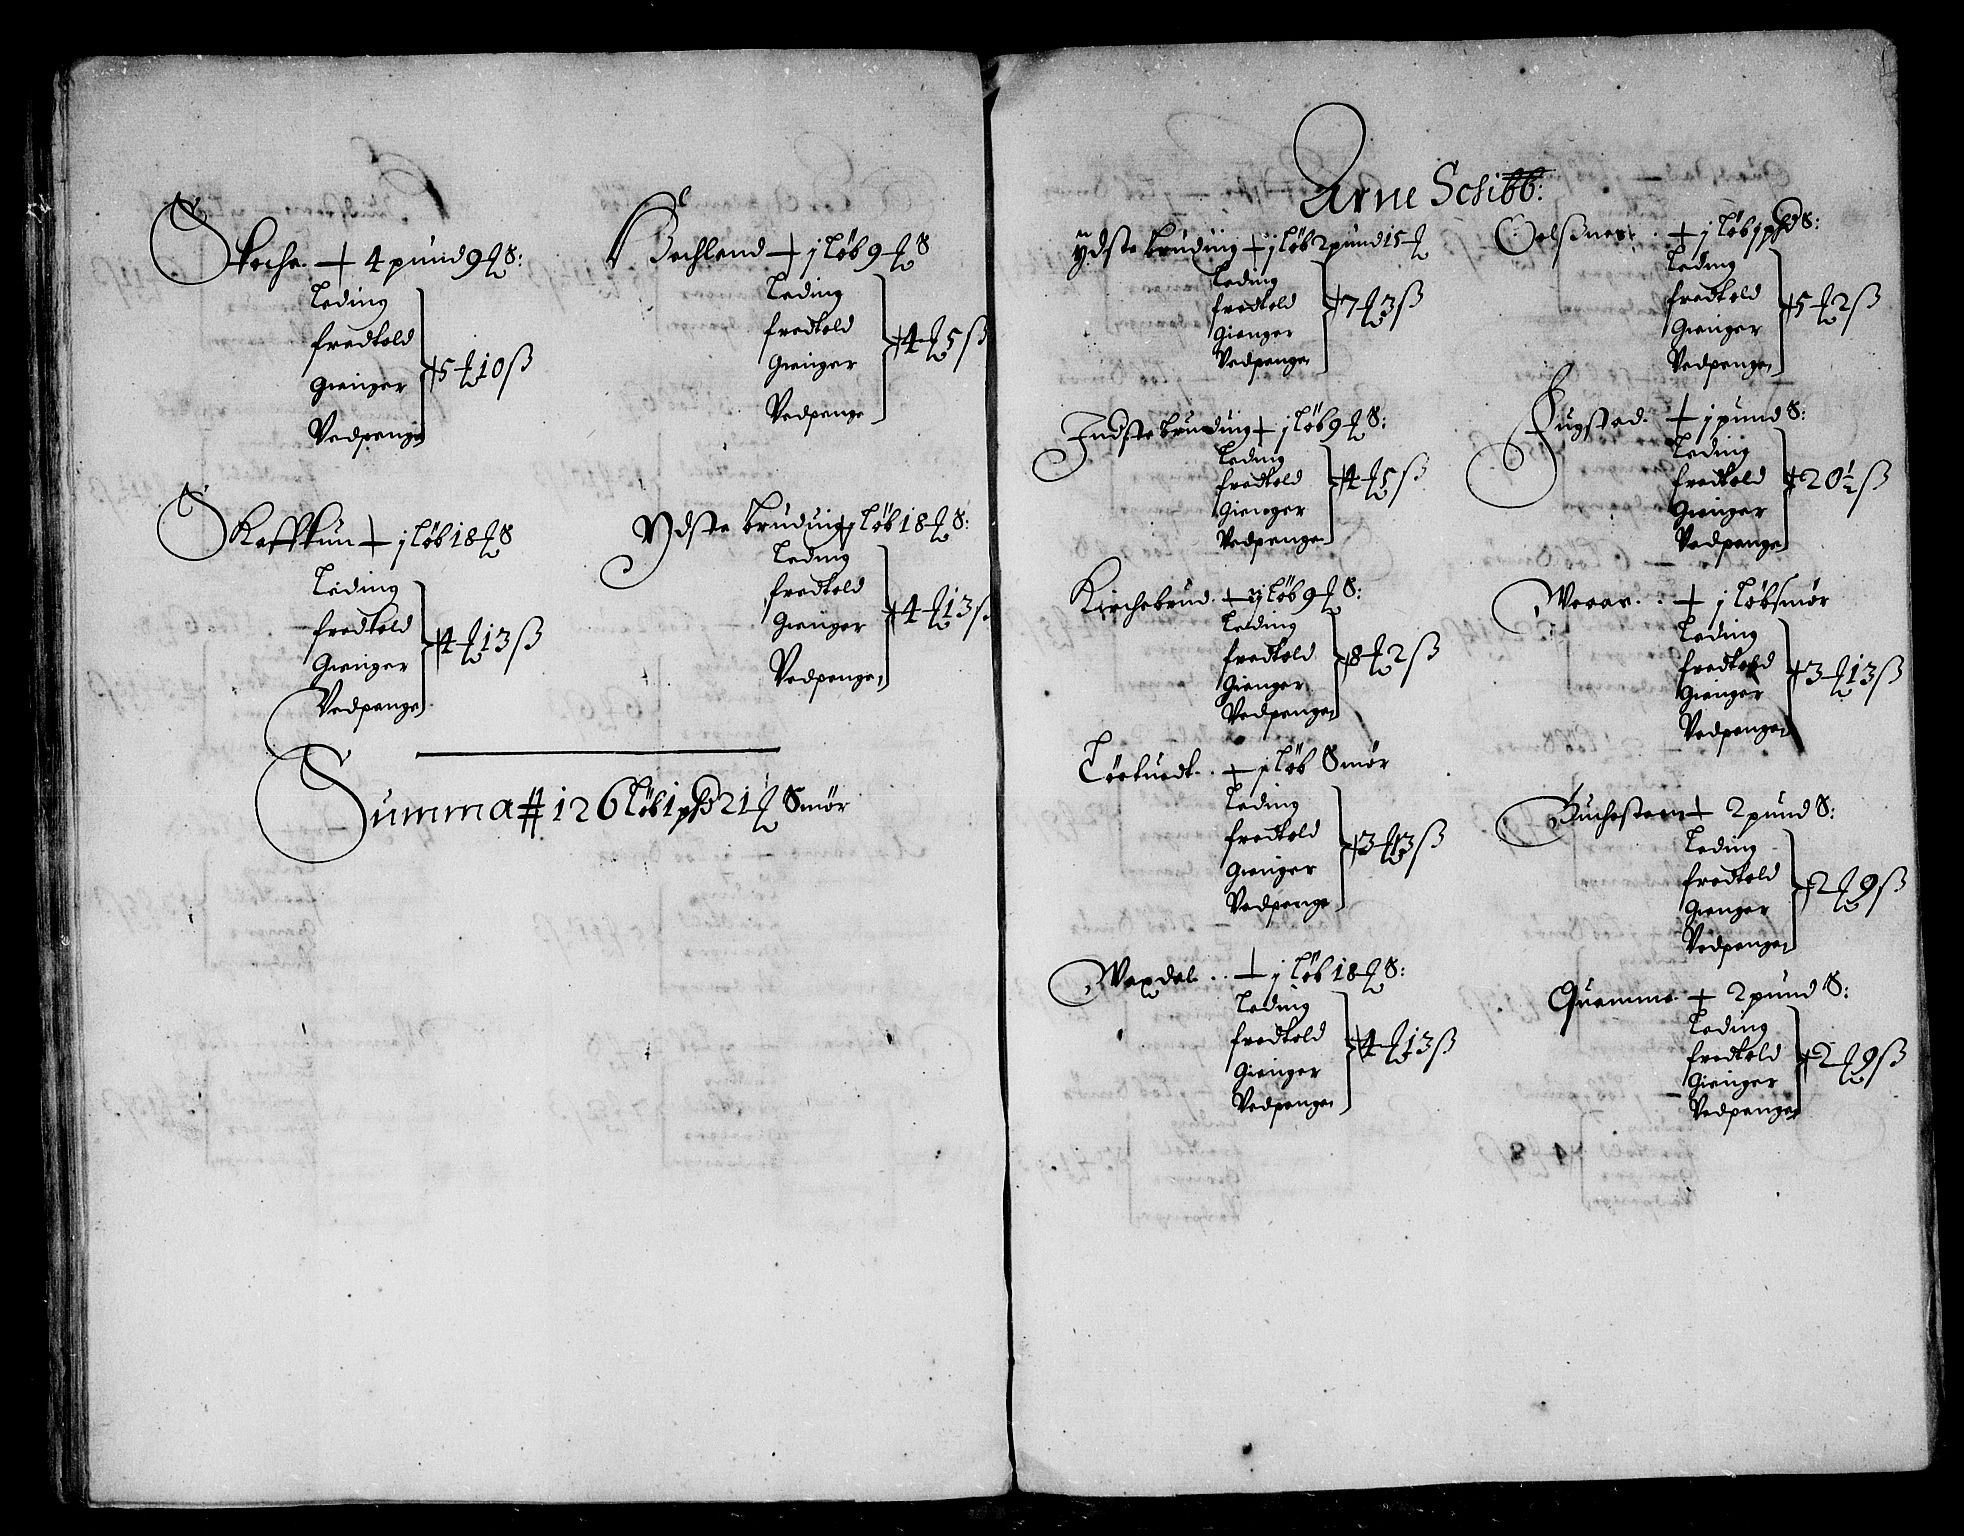 Skeche. + 4 pund 9 ℔ S:
Leding
fredtold
Gienger
Vedpenge
+ 5 ℔ 10 ß
Hechland + j løb 9 ℔ S
Leding
fredtold
Gienger
Vedpenge
+ 4 ℔ 5 ß
Skafftun + j løb 18 ℔ S
Leding
fredtold
Gienger
Vedpenge
+ 4 ℔ 13 ß
Ydste bruding + j løb 18 ℔ S:
Leding
fredtold
Gienger
Vedpenge
+ 4 ℔ 13 ß
Summa # 126 løb 1 pħd 21 ℔ Smør
Arne Schibb:
Ÿdste bruding + j løb 2 pund 15 ℔
Leding
fredtold
Gienger
Vedpenge
+ 7 ℔ 3 ß
Indste bruding + j løb 9 ℔ S:
Leding
fredtold
Gienger
Vedpenge
+ 4 ℔ 5 ß
Kirchebrud. + ij løb 9 ℔ S:
Leding
fredtold
Gienger
Vedpenge
+ 8 ℔ 2 ß
Tøetuedt. . + j løb Smør
Leding
fredtold
Gienger
Vedpenge
+ 3 ℔ 13 ß
Waxdal. . . + j løb 18 ℔ S:
Leding
fredtold
Gienger
Vedpenge
+ 4 ℔ 13 ß
Oelsnes. . + j løb j pħd S:
Leding
fredtold
Gienger
Vedpenge
+ 5 ℔ 2 ß
Fugstad. + j pund S:
Leding
fredtold
Gienger
Vedpenge
+ 20 ½ ß
Weear. . . + j løb smør
Leding
fredtold
Gienger
Vedpenge
+ 3 ℔ 13 ß
Buchesteen + 2 pund S:
Leding
fredtold
Gienger
Vedpenge
+ 2 ℔ 9 ß
Quamme. + 2 pund S:
Leding
fredtold
Gienger
Vedpenge
+ 2 ℔ 9 ß